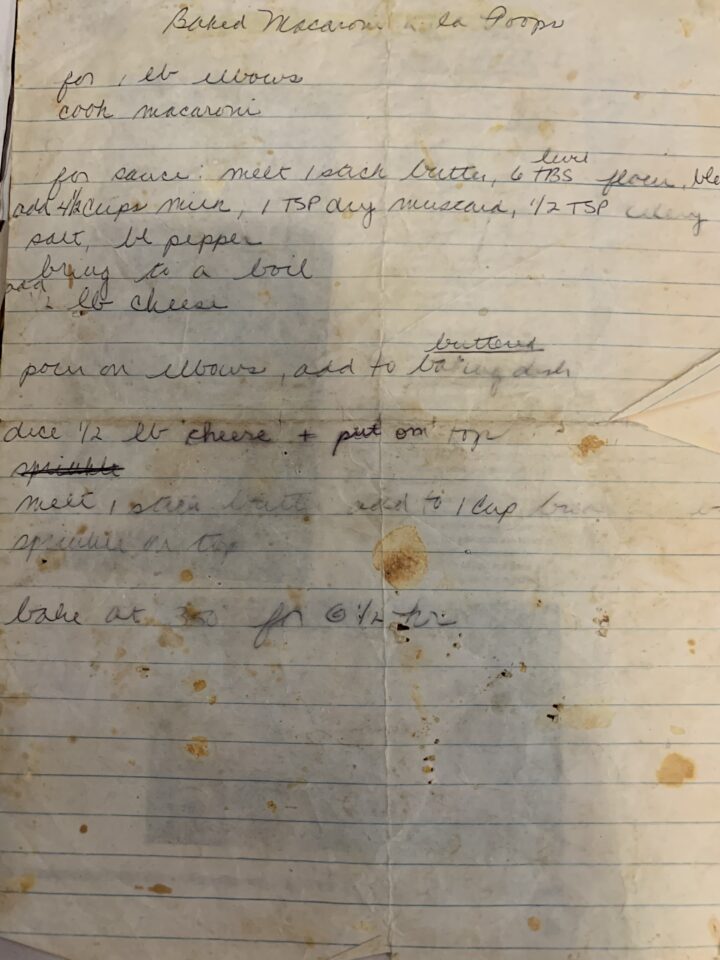 Baked Macaroni a la Poops
for 1 lb elbows
cook macaroni
for sauce: melt 1 stick butter, 6 level TBS flour, ble
add 4½ cups milk, 1 TSP dry mustard, ½ TSP celery
salt, bl pepper
bring to a boil
add
lb cheese
buttered
pour on elbows, add to baking dish
dice ½ lb cheese + put on top
sprinkle
melt 1 stick butter add to 1 cup
sprinkle on top
bake at 350 for ½ hr